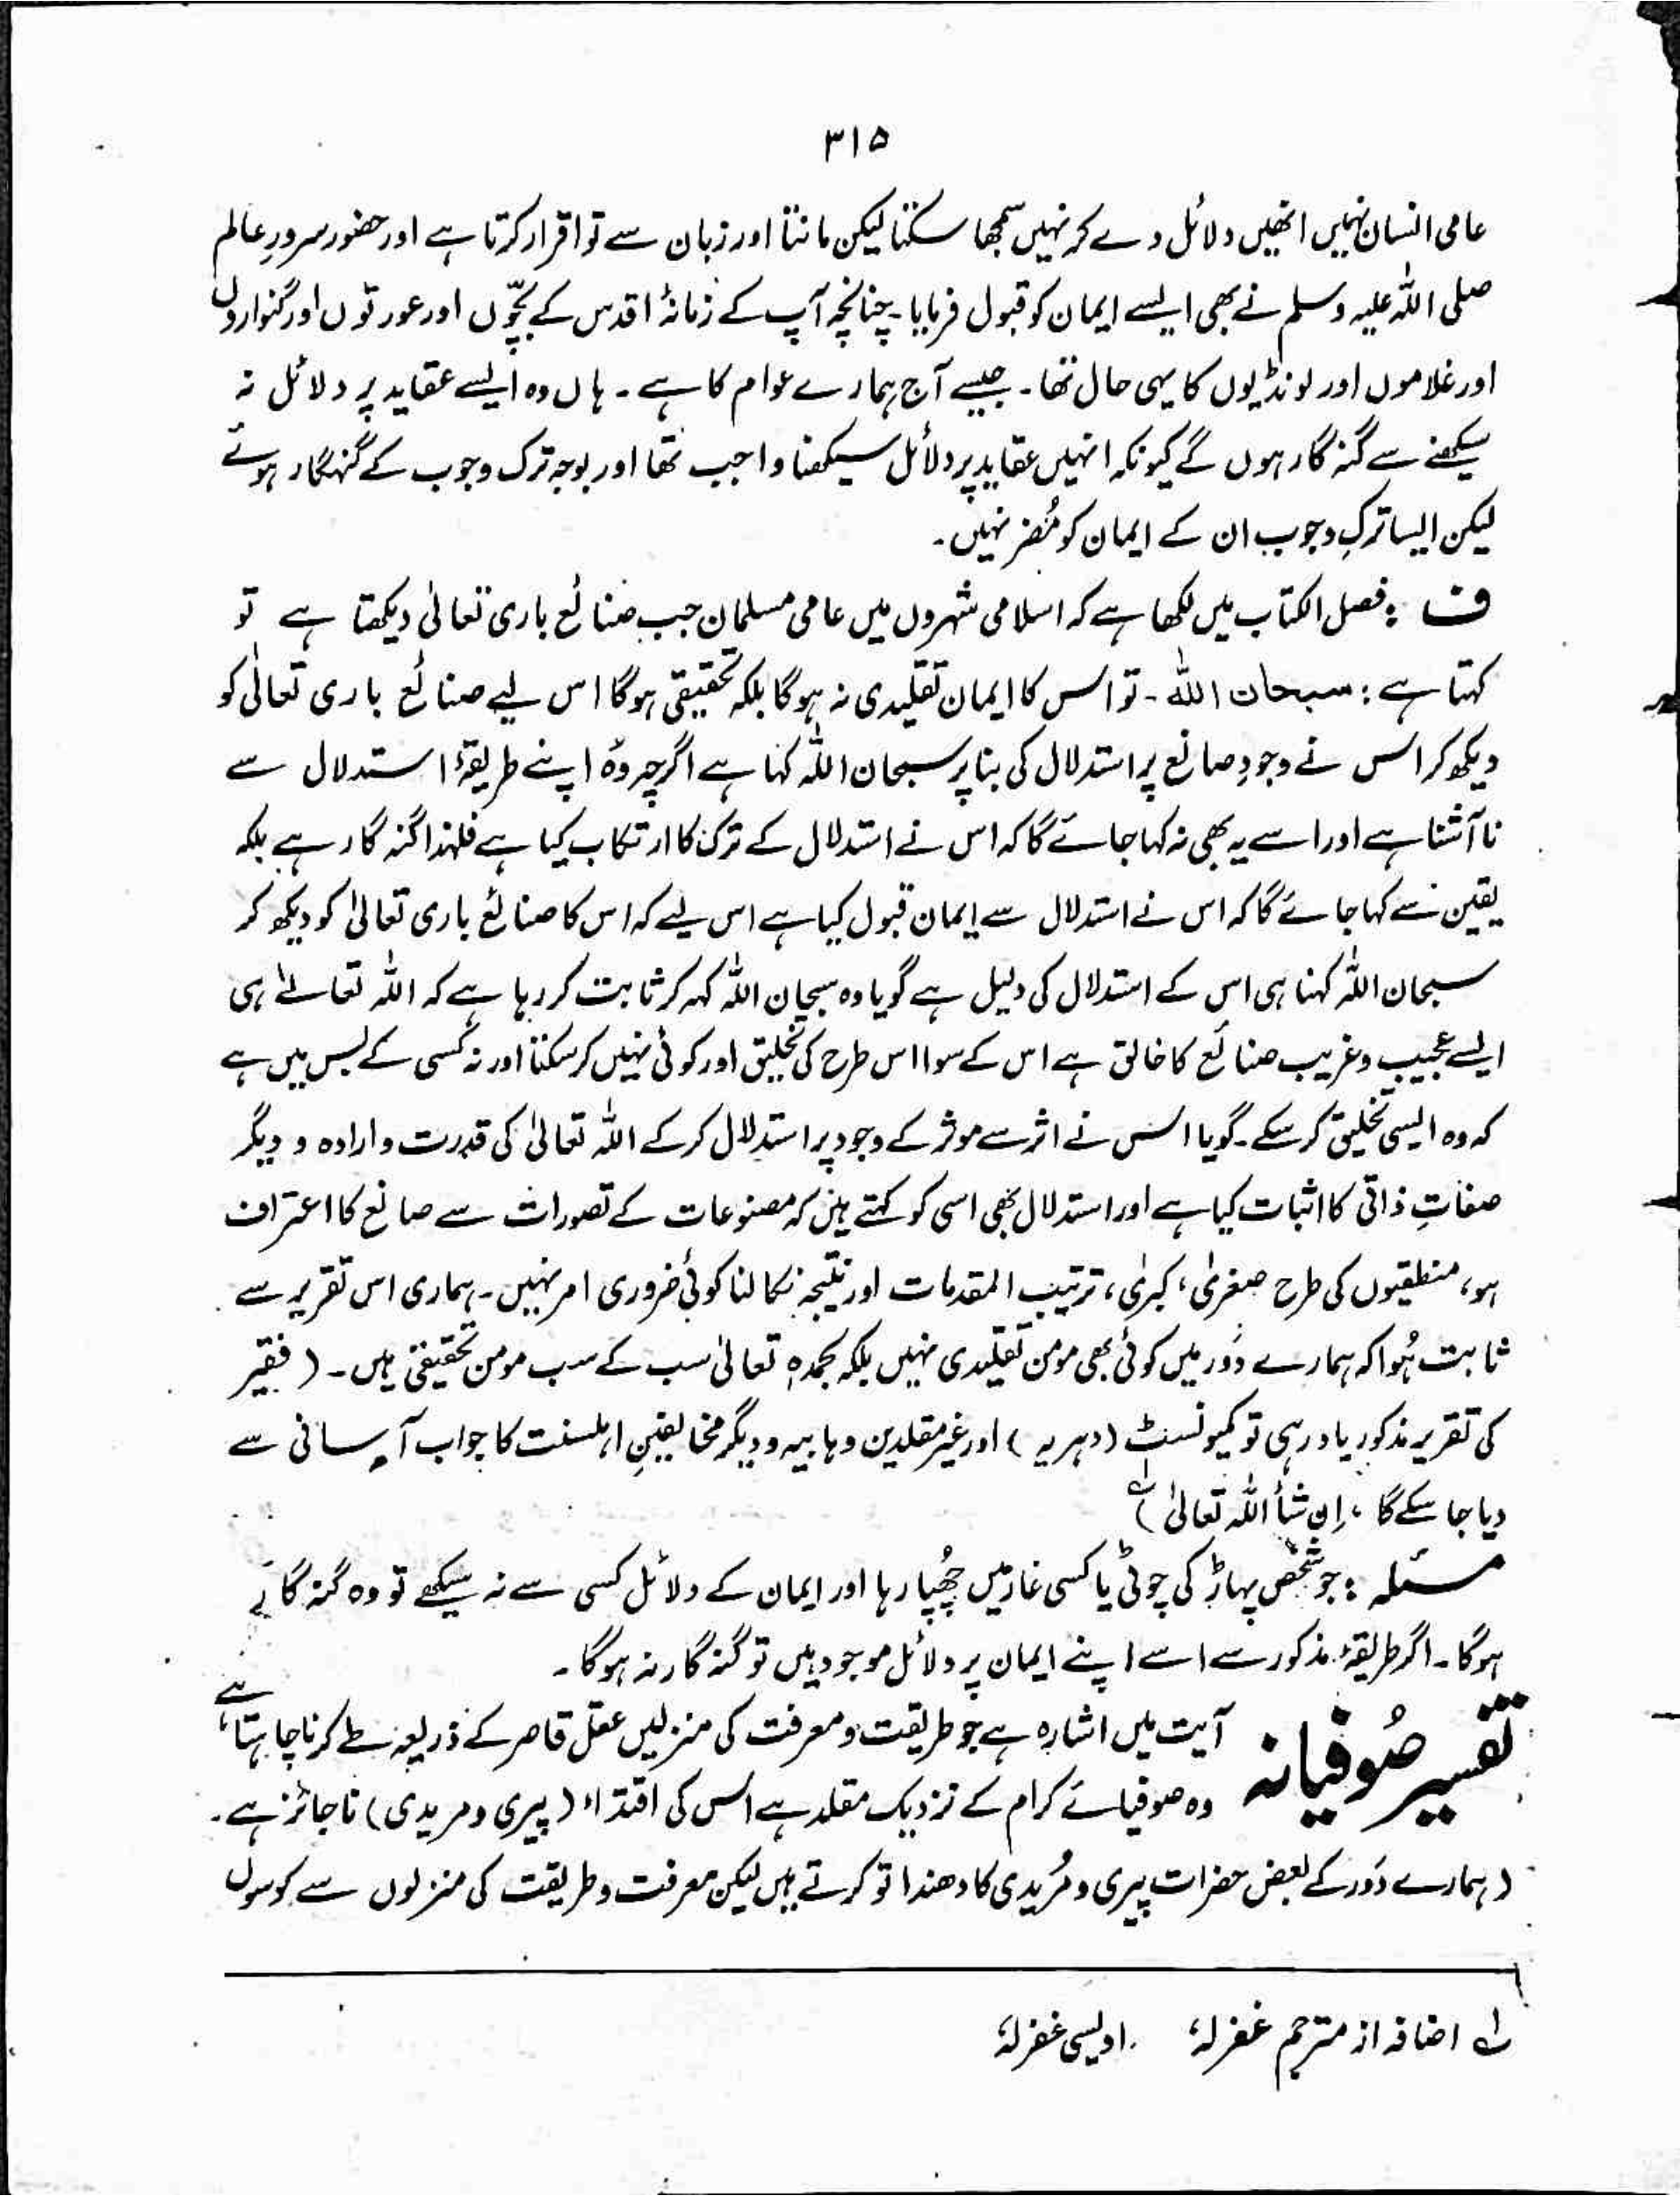 ۳۱۵
عامی انسان نہیں انھیں دلائل دے کر نہیں سمجھا سکتا لیکن مانتا اور زبان سے تو اقرار کرتا ہے اور حضور سرورِ عالم
صلی اللہ علیہ وسلم نے بھی ایسے ایمان کو قبول فرمایا۔ چنانچہ آپ کے زمانۂ اقدس کے بچّوں اور عورتوں اور گنواروں
اور غلاموں اور لونڈیوں کا یہی حال تھا۔ جیسے آج ہمارے عوام کا ہے۔ ہاں وہ ایسے عقاید پر دلائل نہ
سیکھنے سے گنہ گار ہوں گے کیونکہ انہیں عقاید پر دلائل سیکھنا واجب تھا اور بوجہ ترک وجوب کے گنہگار ہوئے
لیکن ایسا ترکِ وجوب ان کے ایمان کو مُضر نہیں۔
ف : فصل الکتاب میں لکھا ہے کہ اسلامی شہروں میں عامی مسلمان جب صنائع باری تعالیٰ دیکھتا ہے تو
کہتا ہے : سبحان اللہ۔ تو اس کا ایمان تقلیدی نہ ہوگا بلکہ تحقیقی ہوگا اس لیے صنائع باری تعالیٰ کو
دیکھ کر اس نے وجودِ صانع پر استدلال کی بنا پر سبحان اللہ کہا ہے اگرچہ وُہ اپنے طریقۂ استدلال سے
نا آشنا ہے اور اسے یہ بھی نہ کہا جائے گا کہ اس نے استدلال کے ترک کا ارتکاب کیا ہے فلہٰذا گنہ گار ہے بلکہ
یقین سے کہا جائے گا کہ اس نے استدلال سے ایمان قبول کیا ہے اس لیے کہ اس کا صنائع باری تعالیٰ کو دیکھ کر
سبحان اللہ کہنا ہی اس کے استدلال کی دلیل ہے گویا وہ سبحان اللہ کہہ کر ثابت کر رہا ہے کہ اللہ تعالےٰ ہی
ایسے عجیب و غریب صنائع کا خالق ہے اس کے سوا اس طرح کی تخلیق اور کوئی نہیں کر سکتا اور نہ کسی کے بس میں ہے
کہ وہ ایسی تخلیق کر سکے۔ گویا اس نے اثر سے موثر کے وجود پر استدلال کر کے اللہ تعالیٰ کی قدرت و ارادہ و دیگر
صفاتِ ذاتی کا اثبات کیا ہے اور استدلال بھی اسی کو کہتے ہیں کہ مصنوعات کے تصورات سے صانع کا اعتراف
ہو، منطقیوں کی طرح صغریٰ، کبریٰ، ترتیب المقدمات اور نتیجہ نکالنا کوئی ضروری امر نہیں۔ ہماری اس تقریر سے
ثابت ہُوا کہ ہمارے دَور میں کوئی بھی مومن تقلیدی نہیں بلکہ بحمدہٖ تعالیٰ سب کے سب مومن تحقیقی ہیں۔ (فقیر
کی تقریر مذکور یاد رہی تو کمیونسٹ (دہریہ) اور غیر مقلدین وہابیہ و دیگر مخالفینِ اہلسنت کا جواب آسانی سے
دیا جا سکے گا، اِن شأ اللہ تعالیٰ)؂۱
مسئلہ : جو شخص پہاڑ کی چوٹی یا کسی غار میں چُھپا رہا اور ایمان کے دلائل کسی سے نہ سیکھے تو وہ گنہ گار
ہوگا۔ اگر طریقۂ مذکور سے اسے اپنے ایمان پر دلائل موجود ہیں تو گنہ گار نہ ہوگا۔
تفسیر صُوفیانہ آیت میں اشارہ ہے جو طریقت و معرفت کی منزلیں عقل قاصر کے ذریعہ طے کرنا چاہتا ہے
وہ صوفیائے کرام کے نزدیک مقلد ہے اس کی اقتداء (پیری و مریدی) ناجائز ہے۔
(ہمارے دَور کے بعض حضرات پیری و مُریدی کا دھندا تو کرتے ہیں لیکن معرفت و طریقت کی منزلوں سے کوسوں
؂۱ اضافہ از مترجم غفرلہٗ اویسی غفرلہٗ